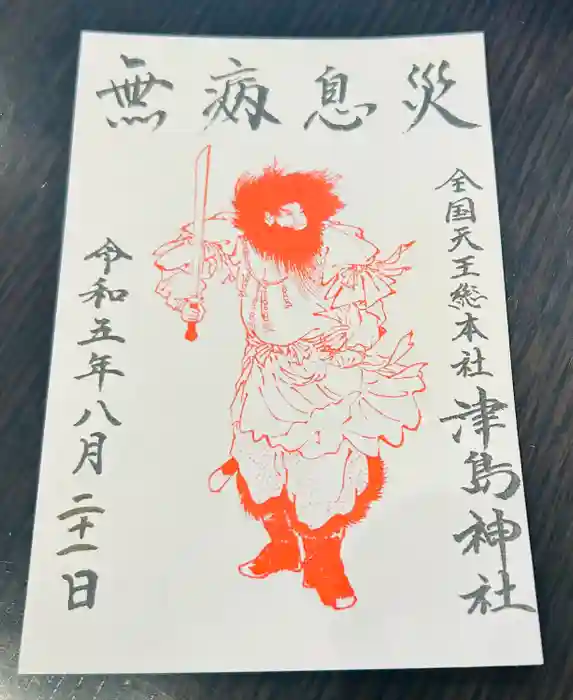 無病息災
全国天王総本社
津島神社
令和五年八月二十一日